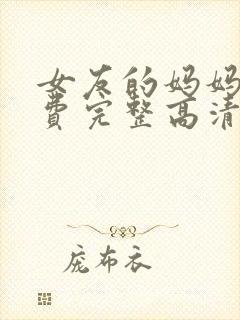 女友的妈妈
费完整高清
庞布衣